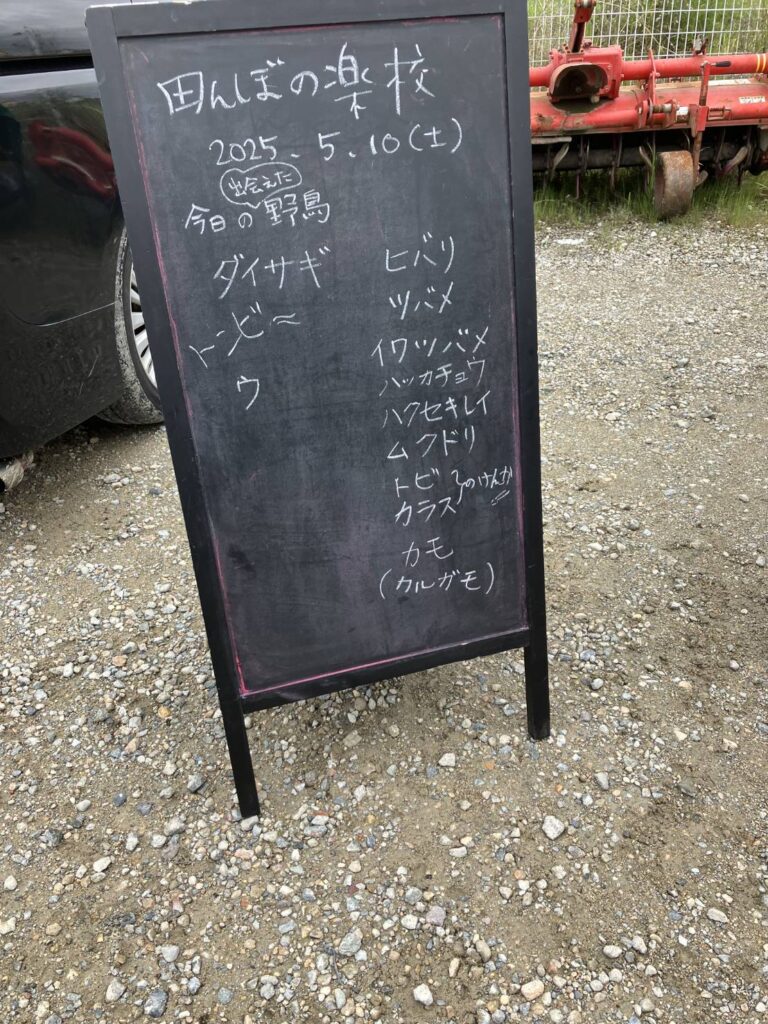 田んぼの楽校
2025.5.10(土)
出会えた
今日の野鳥
ダイサギ
トンビ〜
ウ
ヒバリ
ツバメ
イワツバメ
ハッカチョウ
ハクセキレイ
ムクドリ
トビ
カラス
のけんか
カモ
(カルガモ)